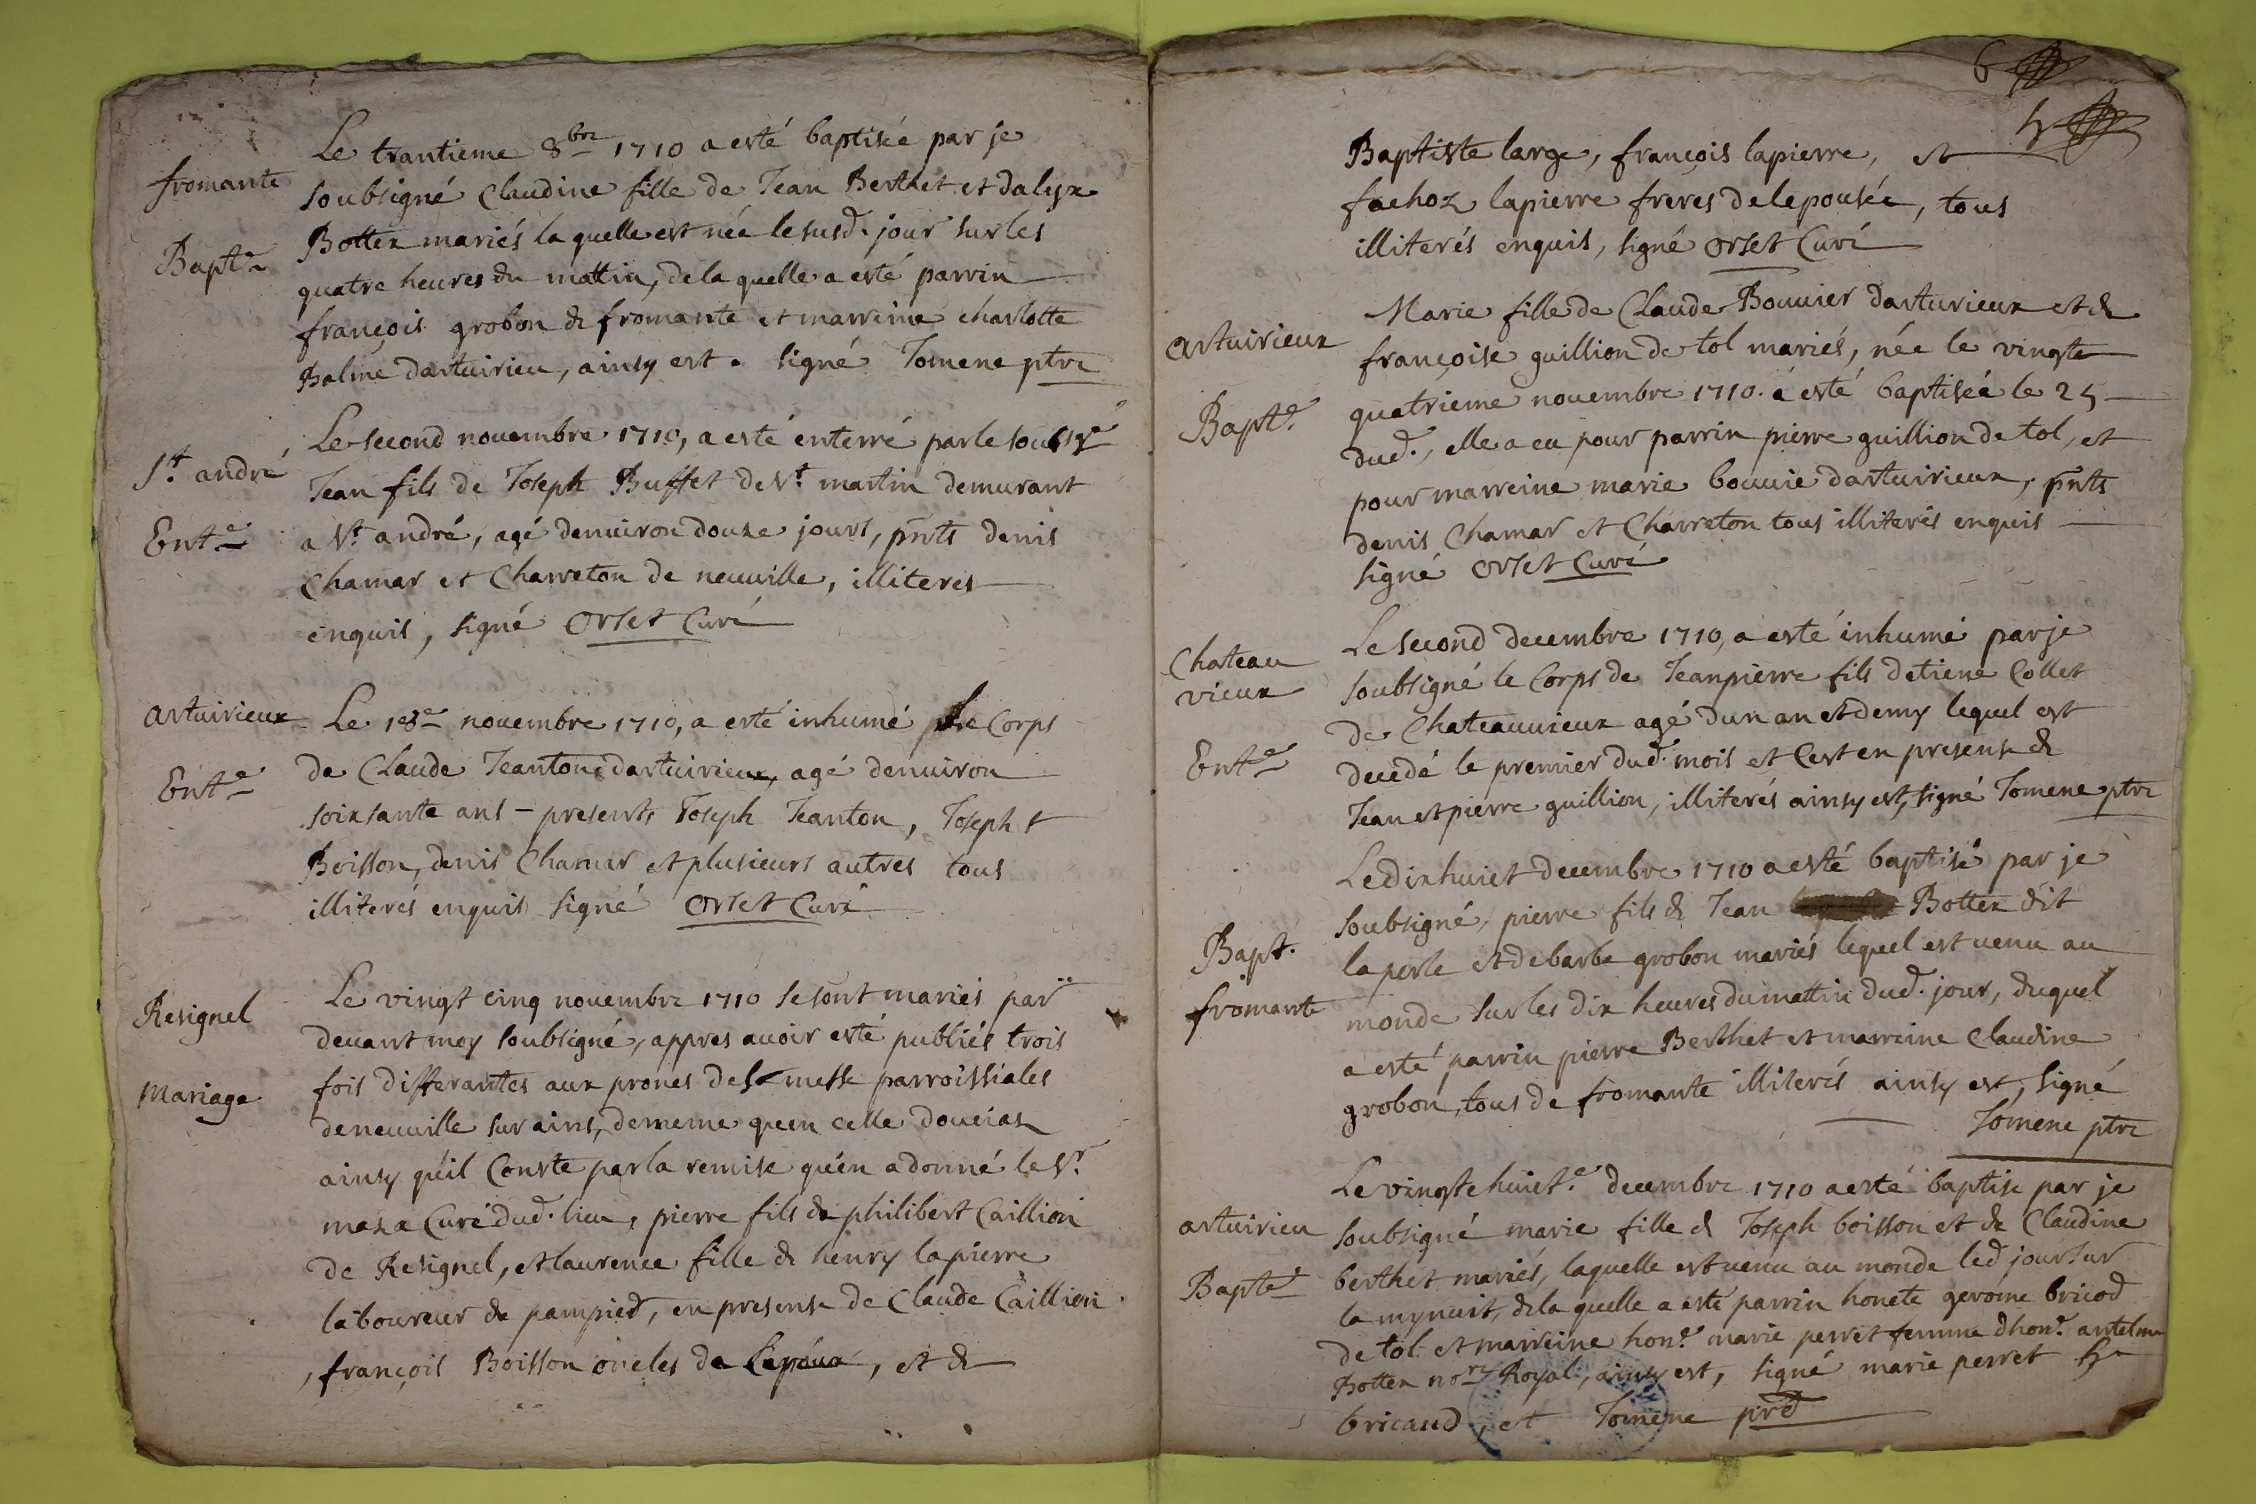 Le trantieme 8bre 1710 a esté baptisée par je
fromante
soubsigné Claudine fille de Jean Berthet et dalix
Bottex mariés la quelle est née le susd. jour sur les
Bapt.e
quatre heures du mattin, de la quelle a esté parrin
françois grobon de fromante et marreine charlotte
Balme dartuirieu, ainsy est. signé Tomene ptre
Le second novembre 1710, a esté enterré par le soubsigé
St. andré
Jean fils de Joseph Buffet de St. martin demurant
Ent.e
a St. andré, agé denuiron douze jours, pnts denis
Chamar et Charreton de neuuille, illiteres
enquis, signé Orset Curé
artuirieux
Le 18e novembre 1710, a esté inhumé le Corps
de Claude Jeanton dartuirieux, agé denuiron
Ent.e
soixsante ans - presents Joseph Jeanton, Joseph
Boisson, denis Chamar et plusieurs autres tous
illiterés enquis signé Orset Curé
Resignel
Le vingt cinq novembre 1710 se sont mariés par
deuant moy soubsigné, appres auoir esté publiés trois
Mariage
fois differantes aux prones des messe parroissiales
de neuuille sur ains, de meme quen celle doueias
ainsy quil Conste par la remise quen a donné le Sr.
maza Curé dud. lieu, pierre fils de philibert Caillion
de Resignel, et laurence fille de henry lapierre
laboureur de pampied, en presense de Claude Caillion
, françois Boisson oncles de Lepoux, et de
6
Baptiste large, françois lapierre, et
lapierre freres de lepousée, tous
illiterés enquis, signé Orset Curé
Marie fille de Claude Bouuier dartuirieux et de
artuirieux
françoise guillion de tol mariés, née le vingte
quatrieme novembre 1710. a esté baptisée le 25
Bapt.e
dud., elle a eu pour parrin pierre guillion de tol, et
pour marreine marie bouuie dartuirieux, pnts
denis Chamar et Charreton tous illiterés enquis
signé Orset Curé
Le second decembre 1710, a esté inhumé par je
Chateau
vieux
soubsigné le Corps de Jeanpierre fils detiene Collet
de Chateauuieux agé dun an et demy lequel est
Ent.e
decedé le premier dud. mois et Cest en presense de
Jean et pierre guillion, illiterés ainsy est, signé Tomene ptre
Le dixhuict decembre 1710 a esté baptisé par je
soubsigné, pierre fils de Jean Bottex dit
Bapt.
la perle et de barbe grobon mariés lequel est uenu au
fromante
monde sur les dix heures du mattin dud. jour, duquel
a esté parrin pierre Berthet et marreine Claudine
grobon, tous de fromante illiterés ainsy est, signé
Tomene ptre
Le vingtehuict.e decembre 1710 a esté baptise par je
artuirieu
soubsigné marie fille de Joseph boisson et de Claudine
berthet mariés, laquelle est uenu au monde led jour sur
Bapte
la mynuit, de la quelle a esté parrin honete gerome bricod
de tol et marreine hon.e marie perret femme dhon.e antelme
Bottex nore Royal, ainsy est, signé marie perret
bricaud, et Tomene